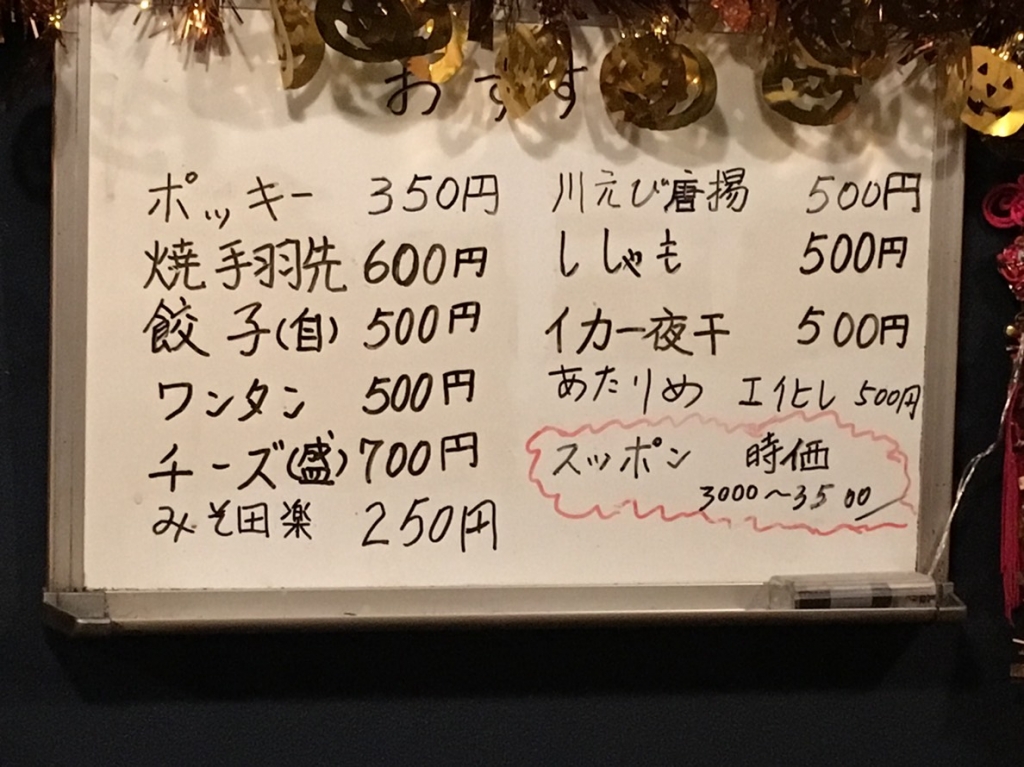 おすす
ポッキー 350円
焼手羽先 600円
餃子(自) 500円
ワンタン 500円
チーズ(盛) 700円
みそ田楽 250円
川えび唐揚 500円
ししゃも 500円
イカ一夜干 500円
あたりめ エイヒレ 500円
スッポン 時価
3000〜3500